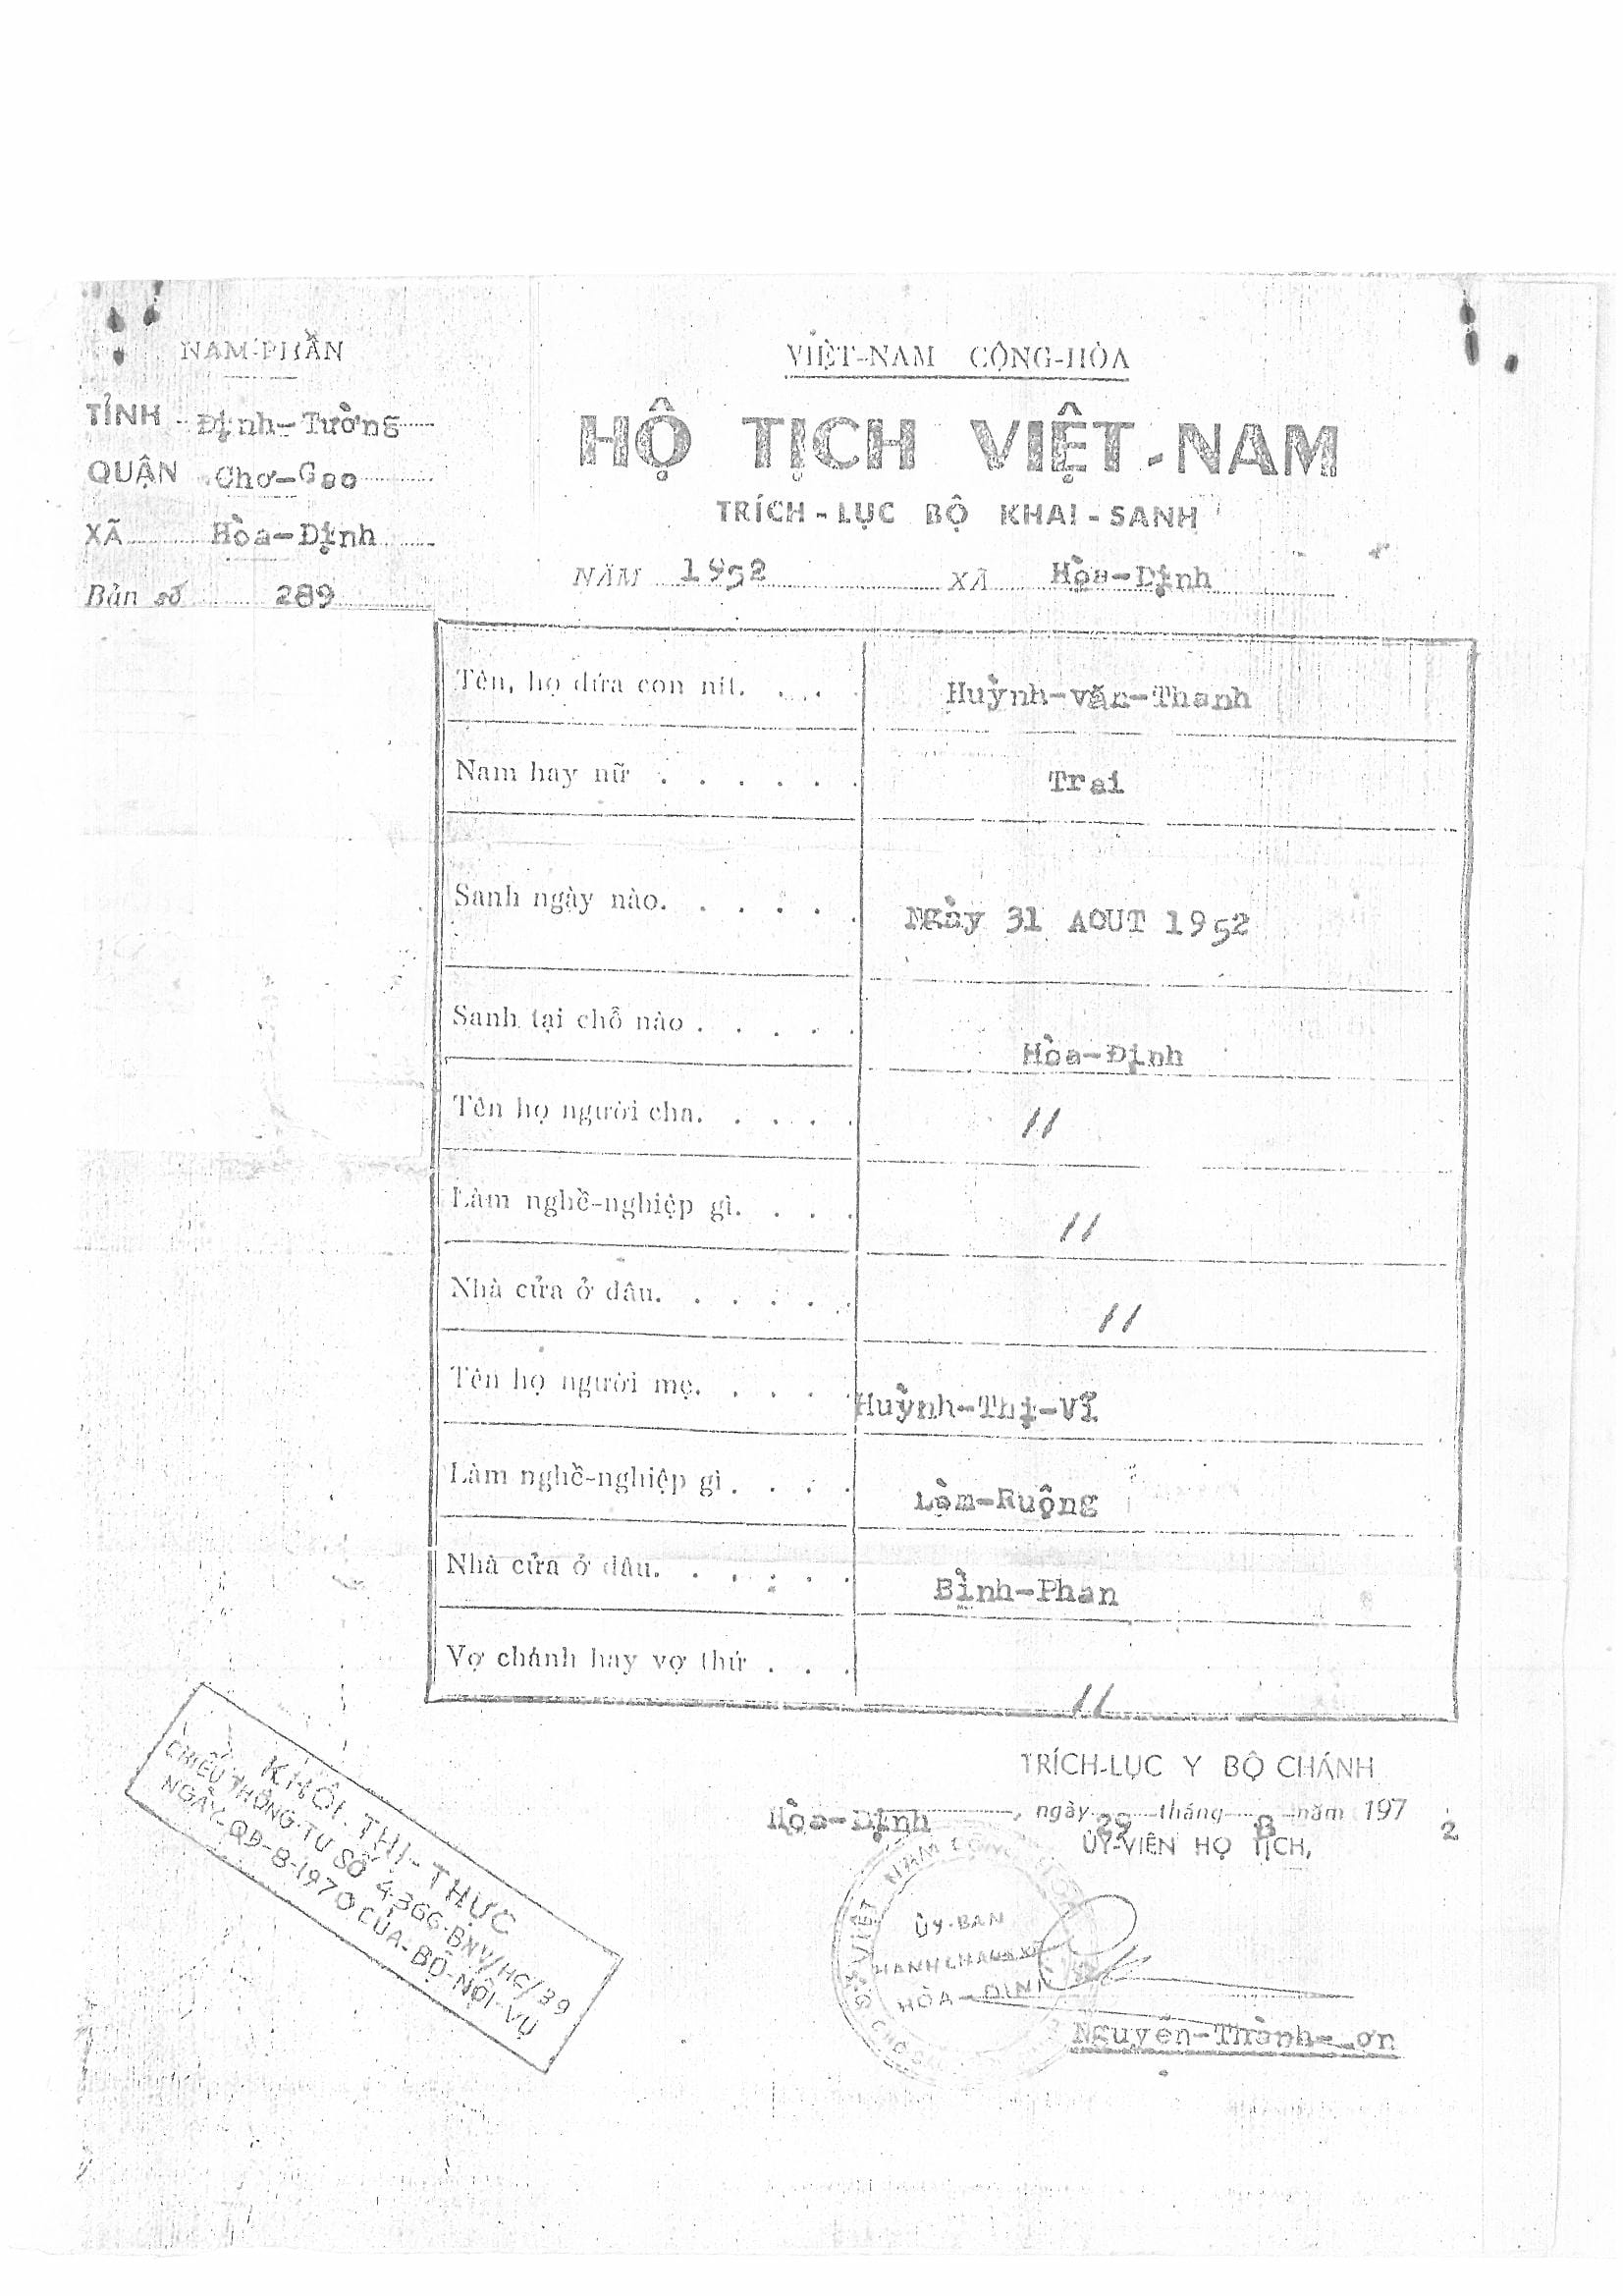 NAM-PHẦN
TỈNH Định-Tường
QUẬN Chợ-Gạo
XÃ Hòa-Định
Bản số 289
VIỆT-NAM CỘNG-HÒA
HỘ TỊCH VIỆT-NAM
TRÍCH-LỤC BỘ KHAI-SANH
NĂM 1952 XÃ Hòa-Định
Tên, họ đứa con nít. . . . Huỳnh-văn-Thanh
Nam hay nữ . . . . . . Trai
Sanh ngày nào. . . . . . Ngày 31 AOUT 1952
Sanh tại chỗ nào . . . . . Hòa-Định
Tên họ người cha. . . . . //
Làm nghề-nghiệp gì. . . . //
Nhà cửa ở đâu. . . . . . //
Tên họ người mẹ. . . . . Huỳnh-Thị-Vĩ
Làm nghề-nghiệp gì . . . . Làm-Ruộng
Nhà cửa ở đâu. . . . . . Bình-Phan
Vợ chánh hay vợ thứ . . . //
TRÍCH-LỤC Y BỘ CHÁNH
Hòa-Định, ngày 29 tháng 8 năm 1972
ỦY-VIÊN HỘ TỊCH,
VIỆT NAM CỘNG HÒA
ỦY-BAN
HÀNH CHÁNH XÃ
HÒA-ĐỊNH
Nguyễn-Thành-
KHỎI THỊ-THỰC
CHIẾU THÔNG-TƯ SỐ 4366-BNV/HC/39
NGÀY-QĐ-8-1970 CỦA-BỘ-NỘI-VỤ